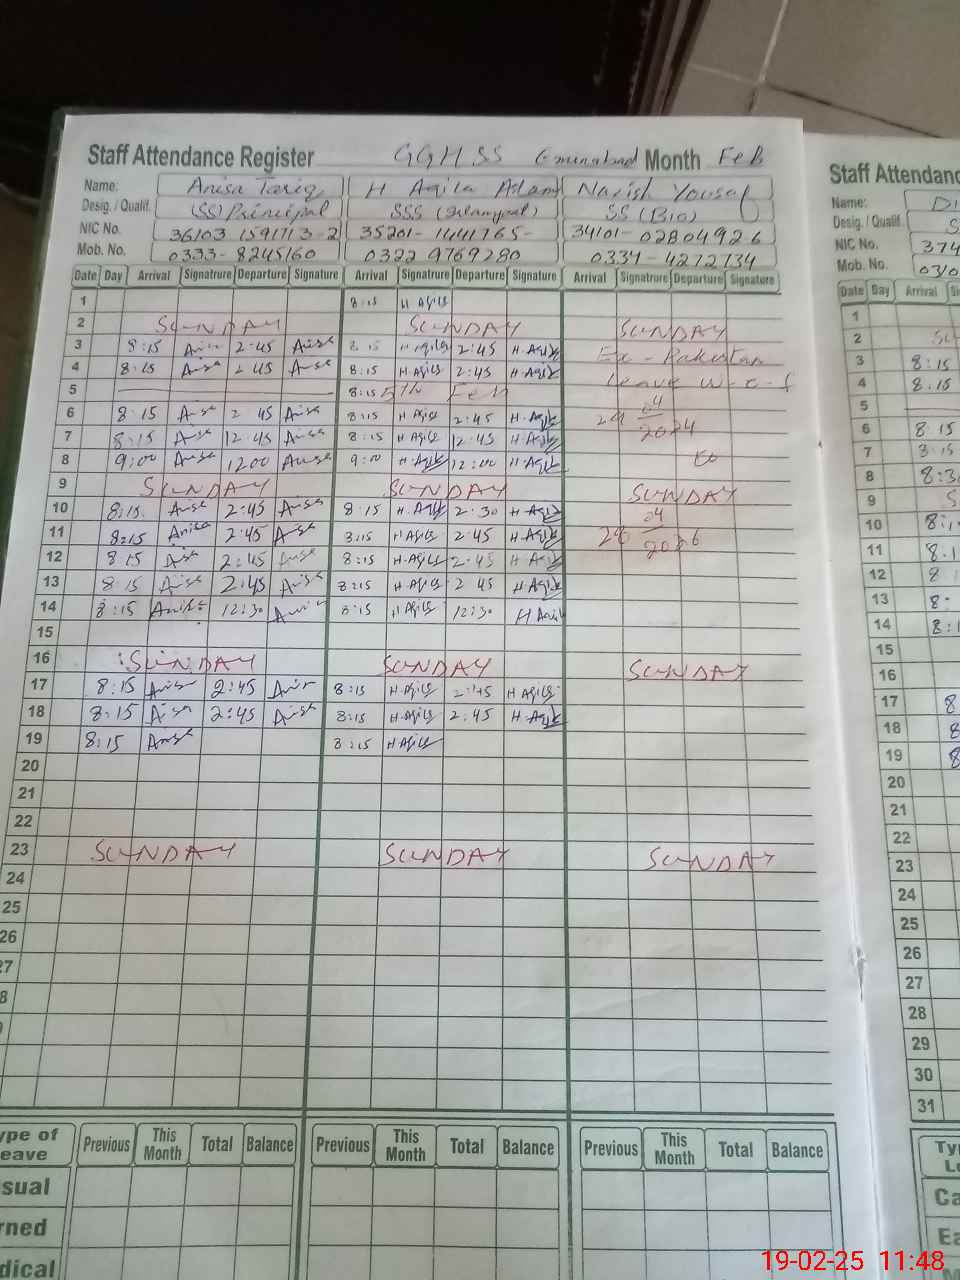 Staff Attendance Register GGHSS Eminabad Month Feb
Name: Anisa Tariq H Aqila Aslam Narish Yousaf
Desig. / Qualif. (SS) Principal SSS (Islamyeat) SS (Bio)
NIC No. 36103 1591713-2 35201-1441765- 34101-02804926
Mob. No. 0333-8245160 0322 9769280 0334-4272734
Date Day Arrival Signatrure Departure Signature Arrival Signatrure Departure Signature Arrival Signatrure Departure Signature
1 8:15 H Aqila
2 SUNDAY SUNDAY SUNDAY
3 8:15 Anisa 2:45 Anisa 8:15 H Aqila 2:45 H. Aqila Ex-Pakistan
4 8:15 Anisa 2 45 Anisa 8:15 H Aqila 2:45 H. Aqila Leave w-e-f
5 8:15 5th Feb
6 8:15 Anisa 2 45 Anisa 8:15 H Aqila 2:45 H. Aqila 29 04 2024
7 8:15 Anisa 12:45 Anisa 8:15 H Aqila 12:45 H. Aqila
8 9:00 Anisa 1200 Anisa 9:00 H. Aqila 12:00 H. Aqila to
9 SUNDAY SUNDAY SUNDAY
10 8:15 Anisa 2:45 Anisa 8:15 H. Aqila 2:30 H. Aqila
11 8:15 Anisa 2:45 Anisa 8:15 H Aqila 2:45 H. Aqila 28 04 2026
12 8:15 Anisa 2:45 Anisa 8:15 H. Aqila 2:45 H. Aqila
13 8:15 Anisa 2:45 Anisa 8:15 H Aqila 2 45 H. Aqila
14 8:15 Anisa 12:30 Anisa 8:15 H Aqila 12:30 H Aqila
15
16 SUNDAY SUNDAY SUNDAY
17 8:15 Anisa 2:45 Anisa 8:15 H. Aqila 2:45 H Aqila
18 8:15 Anisa 2:45 Anisa 8:15 H. Aqila 2:45 H. Aqila
19 8:15 Anisa 8:15 H Aqila
20
21
22
23 SUNDAY SUNDAY SUNDAY
24
25
26
Previous This Month Total Balance Previous This Month Total Balance Previous This Month Total Balance
Staff Attendance
Name:
Desig. / Qualif.
NIC No. 374
Mob. No.
Date Day Arrival
1
2
3 8:15
4 8.15
5
6 8.15
7
8
9
10
11
12
13
14
15
16
17
18
19
20
21
22
23
24
25
26
27
28
29
30
31
19-02-25 11:48